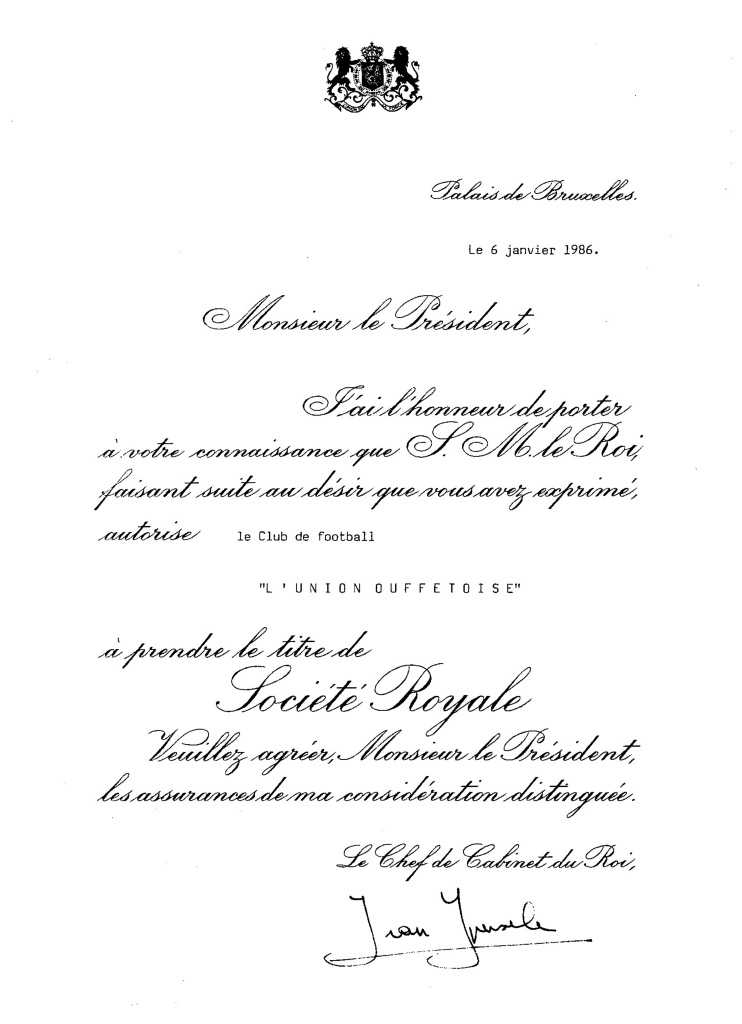 Palais de Bruxelles.
Le 6 janvier 1986.
Monsieur le Président,
J'ai l'honneur de porter
à votre connaissance que S. M. le Roi,
faisant suite au désir que vous avez exprimé,
autorise le Club de football
"L'UNION OUFFETOISE"
à prendre le titre de
Société Royale
Veuillez agréer, Monsieur le Président,
les assurances de ma considération distinguée.
Le Chef de Cabinet du Roi,
Jean